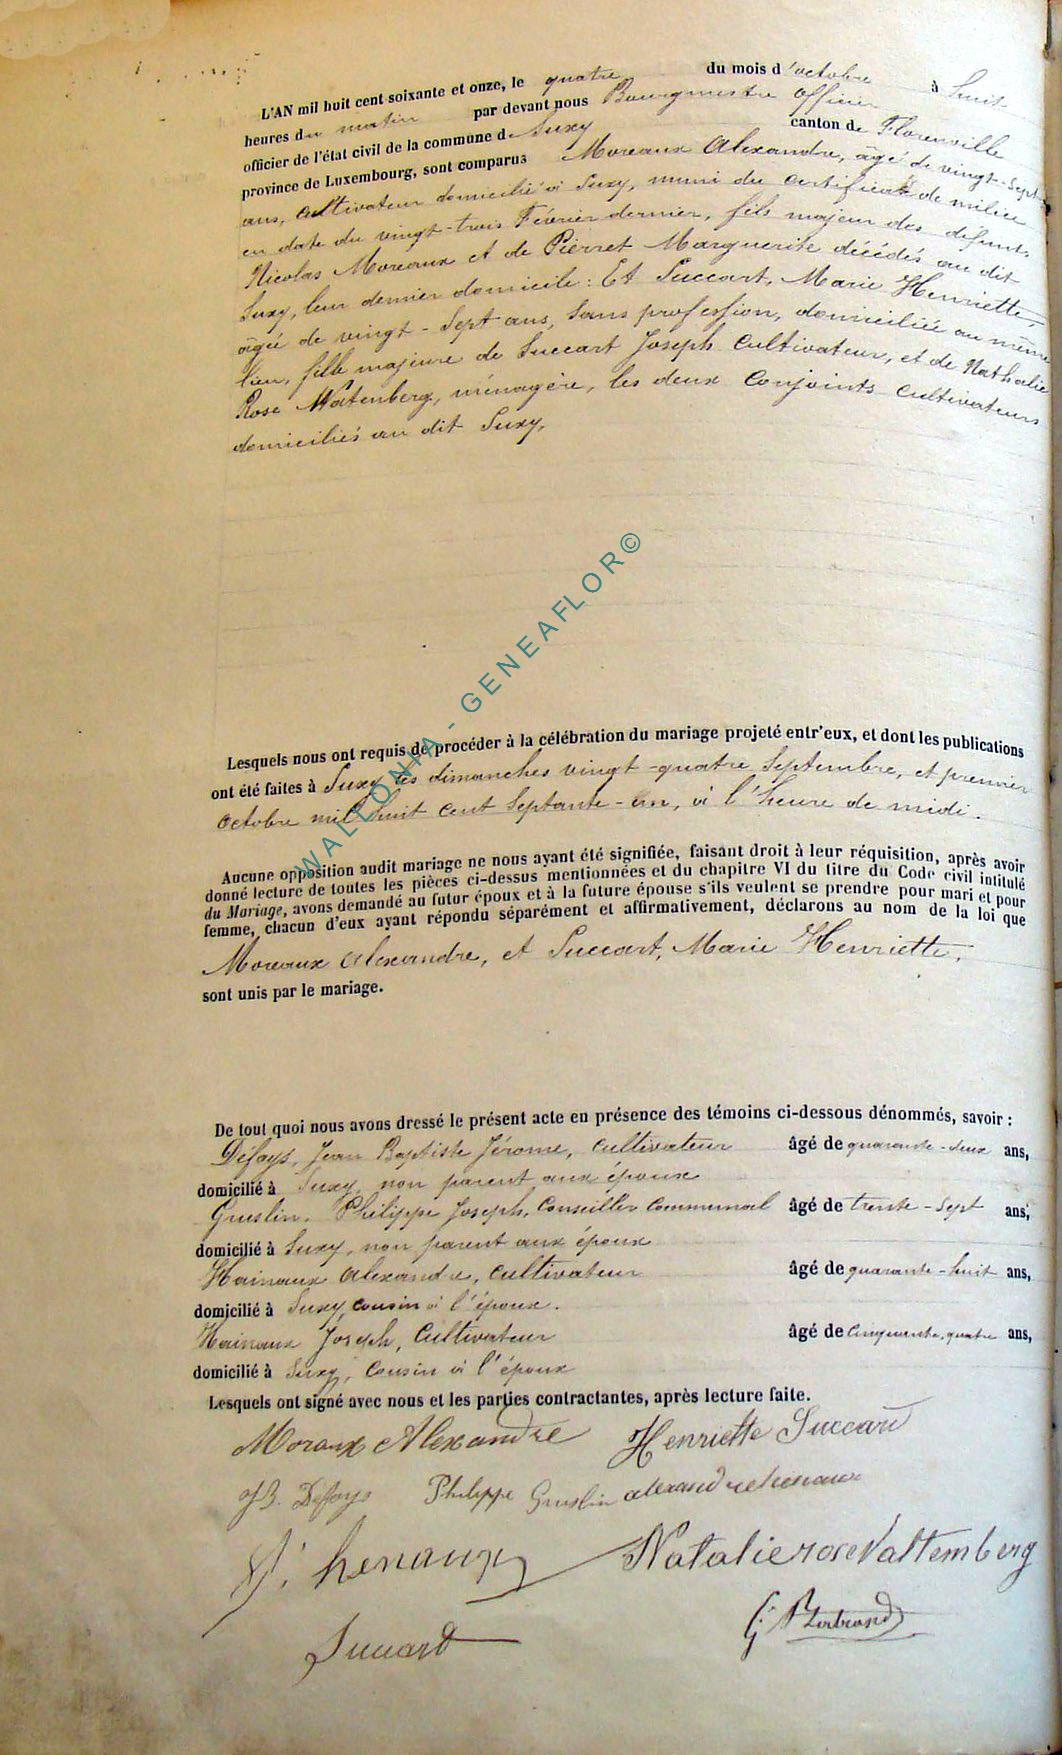 L'AN mil huit cent soixante et onze, le quatre du mois d'octobre à huit
heures du matin par devant nous Bourgmestre officier
officier de l'état civil de la commune de Suxy canton de Florenville
province de Luxembourg, sont comparus Moreaux Alexandre, âgé de vingt-sept
ans, cultivateur domicilié à Suxy, muni du certificat de milice
en date du vingt-trois Février dernier, fils majeur des defunts
Nicolas Moreaux et de Pierret Marguerite décédés au dit
Suxy, leur dernier domicile : Et Succart, Marie Henriette,
âgée de vingt-sept ans, sans profession, domiciliée au même
lieu, fille majeure de Succart Joseph cultivateur, et de Nathalie
Rose Watenberg, ménagère, les deux conjoints cultivateurs
domiciliés au dit Suxy.
Lesquels nous ont requis de procéder à la célébration du mariage projeté entr'eux, et dont les publications
ont été faites à Suxy les dimanches vingt-quatre Septembre, et premier
octobre mil huit cent septante-un, à l'heure de midi.
Aucune opposition audit mariage ne nous ayant été signifiée, faisant droit à leur réquisition, après avoir
donné lecture de toutes les pièces ci-dessus mentionnées et du chapitre VI du titre du Code civil intitulé
du Mariage, avons demandé au futur époux et à la future épouse s'ils veulent se prendre pour mari et pour
femme, chacun d'eux ayant répondu séparément et affirmativement, déclarons au nom de la loi que
Moreaux Alexandre, et Succart, Marie Henriette,
sont unis par le mariage.
De tout quoi nous avons dressé le présent acte en présence des témoins ci-dessous dénommés, savoir :
Defays, Jean Baptiste Jérome, cultivateur âgé de quarante-deux ans,
domicilié à Suxy, non parent aux époux
Gruslin, Philippe Joseph, Conseiller communal âgé de trente-sept ans,
domicilié à Suxy, non parent aux époux
Hainaux Alexandre, cultivateur âgé de quarante-huit ans,
domicilié à Suxy, cousin à l'époux.
Hainaux Joseph, Cultivateur âgé de cinquante-quatre ans,
domicilié à Suxy, cousin à l'époux
Lesquels ont signé avec nous et les parties contractantes, après lecture faite.
Moraux Alexandre Henriette Succard
J B. Defays Philippe Gruslin alexandre henaux
J. henaux Natalie rose Valtemberg
Succard G. Bertrand
WALLONIA - GENEAFLOR©